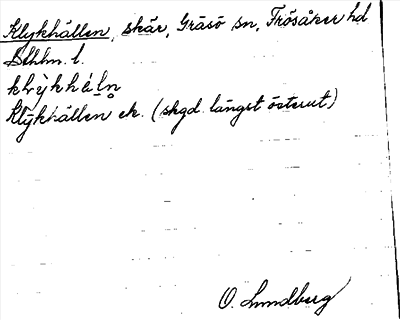 Klykhällen, skär, Gräsö sn, Frösåker hd
Sthlm. l.
klỳkhàln̥
Klykhällen ek. (skgd. längst österut)
O. Lundberg